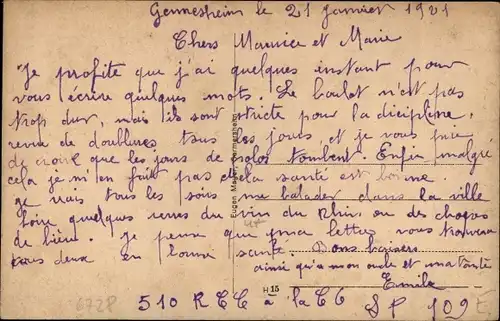 Germesheim le 21 janvier 1921
Chers Maurice et Marie
Je profite que j'ai quelques instant pour
vous écrire quelques mots. Le boulot n'est pas
trop dur, mais ils sont stricte pour la dicipline,
revue de doublures tous les jours, et je vous prie
de croire que les jours de solos tombent. Enfin malgré
cela je m'en fait pas et la santé est bonne.
Je vais tous les soirs me balader dans la ville
boire quelques verres du vin du Rhin ou des chopes
de bière. Je pense que ma lettre vous trouvera
tous deux en bonne santé. Bons baisers
ainsi qu'a mon oncle et ma tante
Emile
510 RCC à la CC SP 109
Eugen Mager, Germersheim
H 15
6728